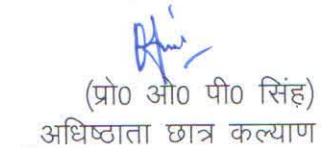 (प्रो0 ओ0 पी0 सिंह)
अधिष्ठाता छात्र कल्याण